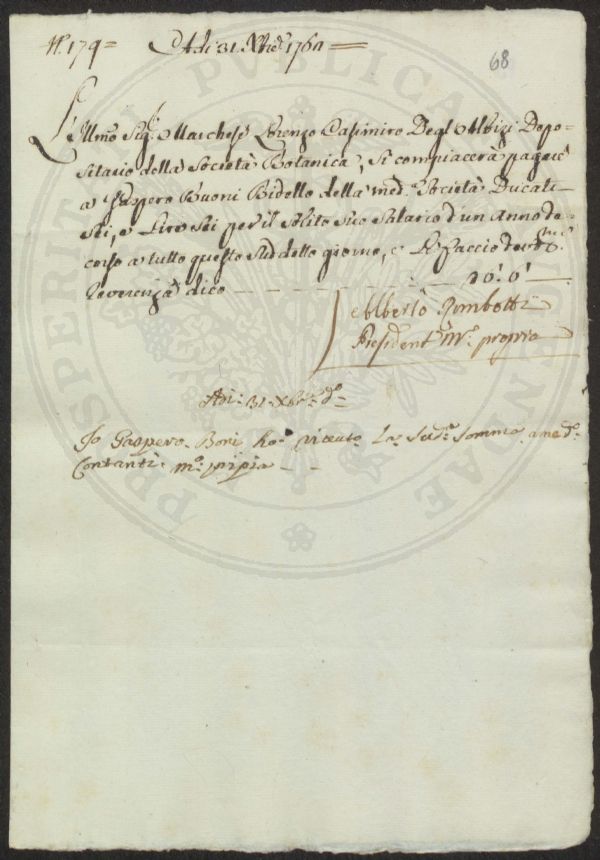 N.° 179 = Adi 31 Xbre 1760 =
68
L'Illmo Sig.r Marchese Lorenzo Casimiro Degl'Albizi Depo-
sitario della Società Botanica, si compiacerà pagare
a Gaspero Buoni Bidello della med.a Società Ducati
Sei, e Lire Sei per il solito suo Salario d'un Anno de-
corso a tutto questo suddetto giorno, e Le faccio
reverenza dico
Alberto Rombotti
President M.o proprio
Adi: 31. Xbre: d.o
Io Gaspero Boni ho riceuto La Sud.a Somma
Contanti m.o ppia
PROSPERITATI PUBLICAE AUGENDAE